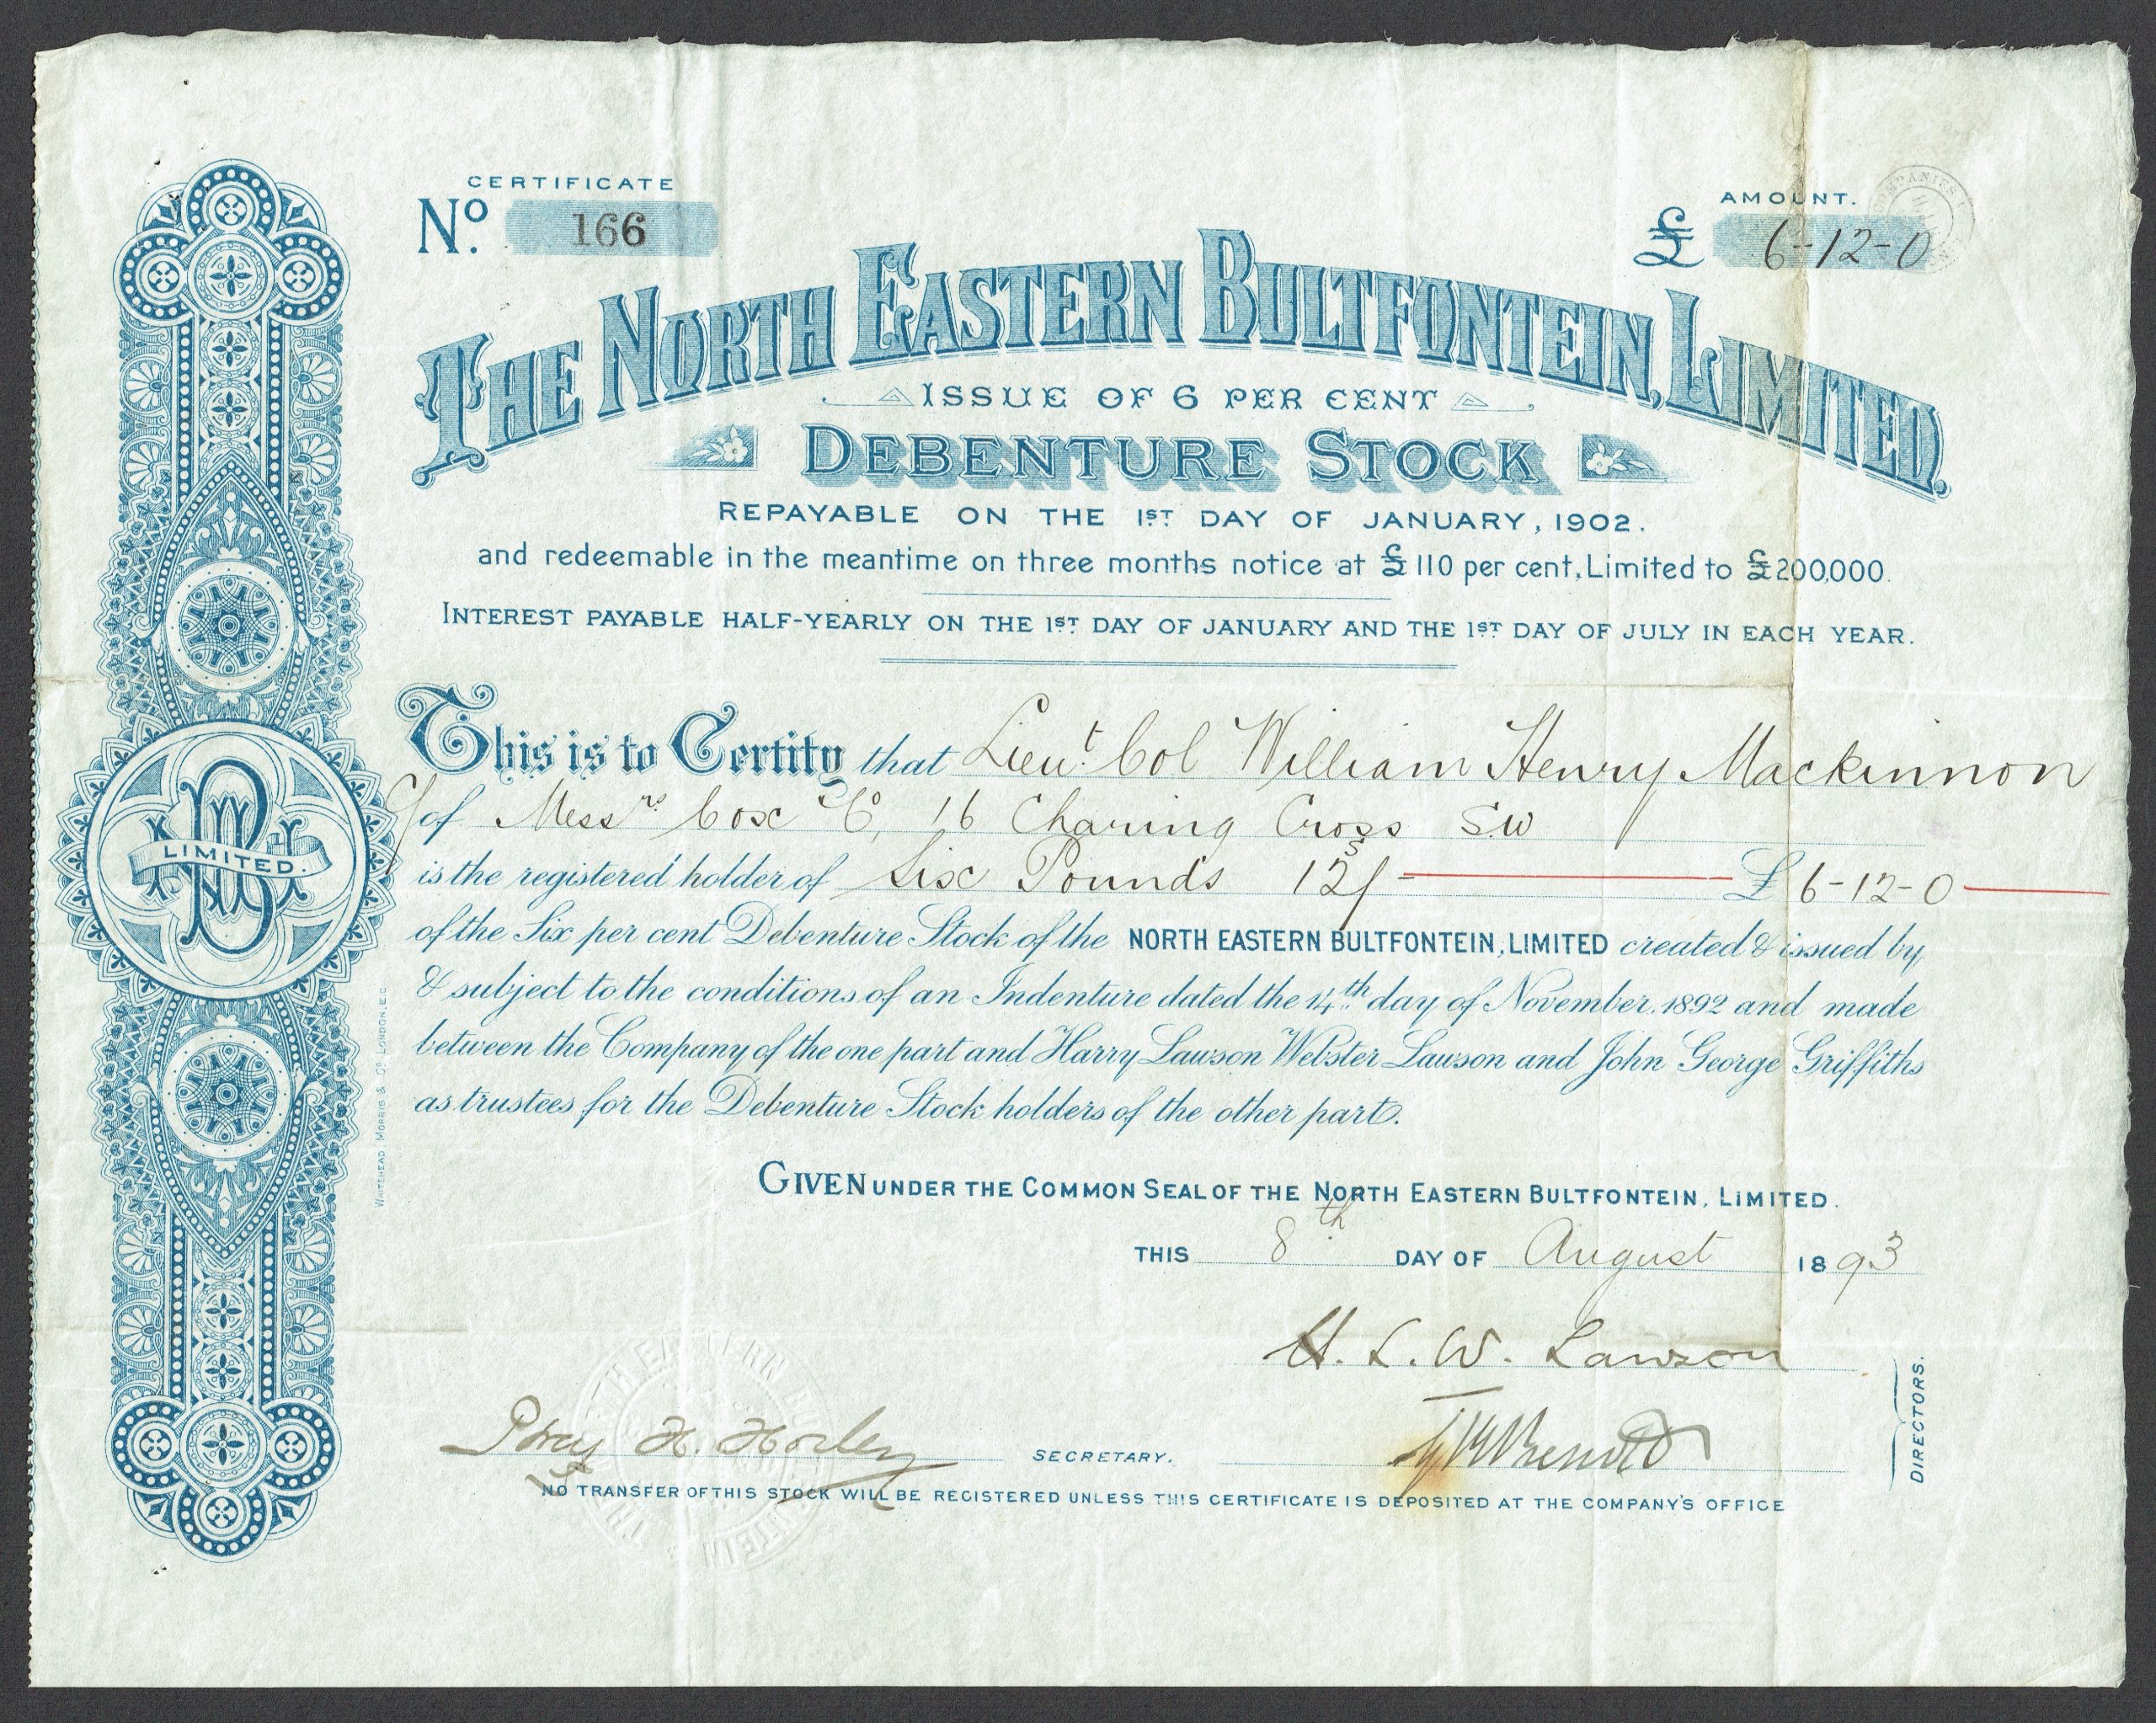 CERTIFICATE
No. 166
AMOUNT.
£ 6-12-0
THE NORTH EASTERN BULTFONTEIN, LIMITED.
ISSUE OF 6 PER CENT
DEBENTURE STOCK
REPAYABLE ON THE 1ST DAY OF JANUARY, 1902.
and redeemable in the meantime on three months notice at £110 per cent, Limited to £200,000.
INTEREST PAYABLE HALF-YEARLY ON THE 1ST DAY OF JANUARY AND THE 1ST DAY OF JULY IN EACH YEAR.
This is to Certify that Lieut Col William Henry Mackinnon
c/ of Messrs Cox & Co, 16 Charing Cross S.W
is the registered holder of Six Pounds 12s/- £ 6-12-0
of the Six per cent Debenture Stock of the NORTH EASTERN BULTFONTEIN, LIMITED created & issued by
& subject to the conditions of an Indenture dated the 14th day of November, 1892 and made
between the Company of the one part and Harry Lawson Webster Lawson and John George Griffiths
as trustees for the Debenture Stock holders of the other part.
LIMITED.
WHITEHEAD, MORRIS & CO. LONDON, E.C.
GIVEN UNDER THE COMMON SEAL OF THE NORTH EASTERN BULTFONTEIN, LIMITED.
THIS 8th DAY OF August 1893
H. L. W. Lawson
Percy H. Horley SECRETARY.
DIRECTORS.
NO TRANSFER OF THIS STOCK WILL BE REGISTERED UNLESS THIS CERTIFICATE IS DEPOSITED AT THE COMPANY'S OFFICE